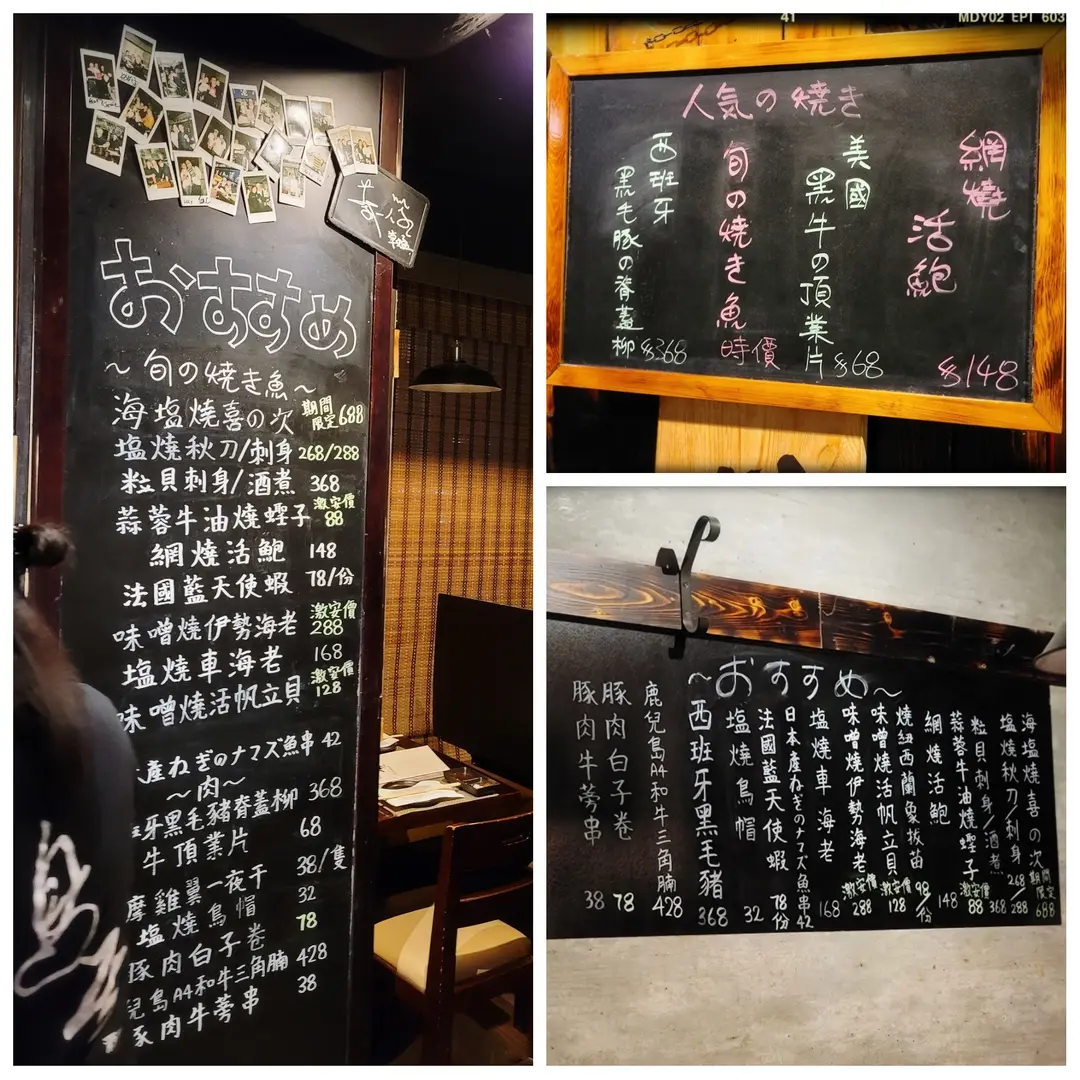 おすすめ
～旬の焼き魚～
海塩燒喜の次 期間限定 688
塩燒秋刀/刺身 268/288
粒貝刺身/酒煮 368
蒜蓉牛油燒蟶子 激安價 88
網燒活鮑 148
法國藍天使蝦 78/份
味噌燒伊勢海老 激安價 288
塩燒車海老 168
味噌燒活帆立貝 激安價 128
産ねぎのナマズ魚串 42
～肉～
牙黑毛豬脊蓋柳 368
牛頂業片 68
摩雞翼一夜干 38/隻
塩燒鳥帽 32
豚肉白子卷 78
兒島A4和牛三角腩 428
豚肉牛蒡串 38
MDY02 EPT 603
41
人気の焼き
網燒活鮑 $148
美國黑牛の頂業片 $68
旬の焼き魚 時價
西班牙黑毛豚の脊蓋柳 $368
～おすすめ～
海塩燒喜の次 期間限定 688
塩燒秋刀/刺身 268/288
粒貝刺身/酒煮 368
蒜蓉牛油燒蟶子 激安價 88
網燒活鮑 148
燒紐西蘭象拔苗 98/份
味噌燒活帆立貝 激安價 128
味噌燒伊勢海老 激安價 288
塩燒車海老 168
日本産ねぎのナマズ魚串 42
法國藍天使蝦 78/份
塩燒鳥帽 32
西班牙黑毛豬 368
鹿兒島A4和牛三角腩 428
豚肉白子卷 78
豚肉牛蒡串 38